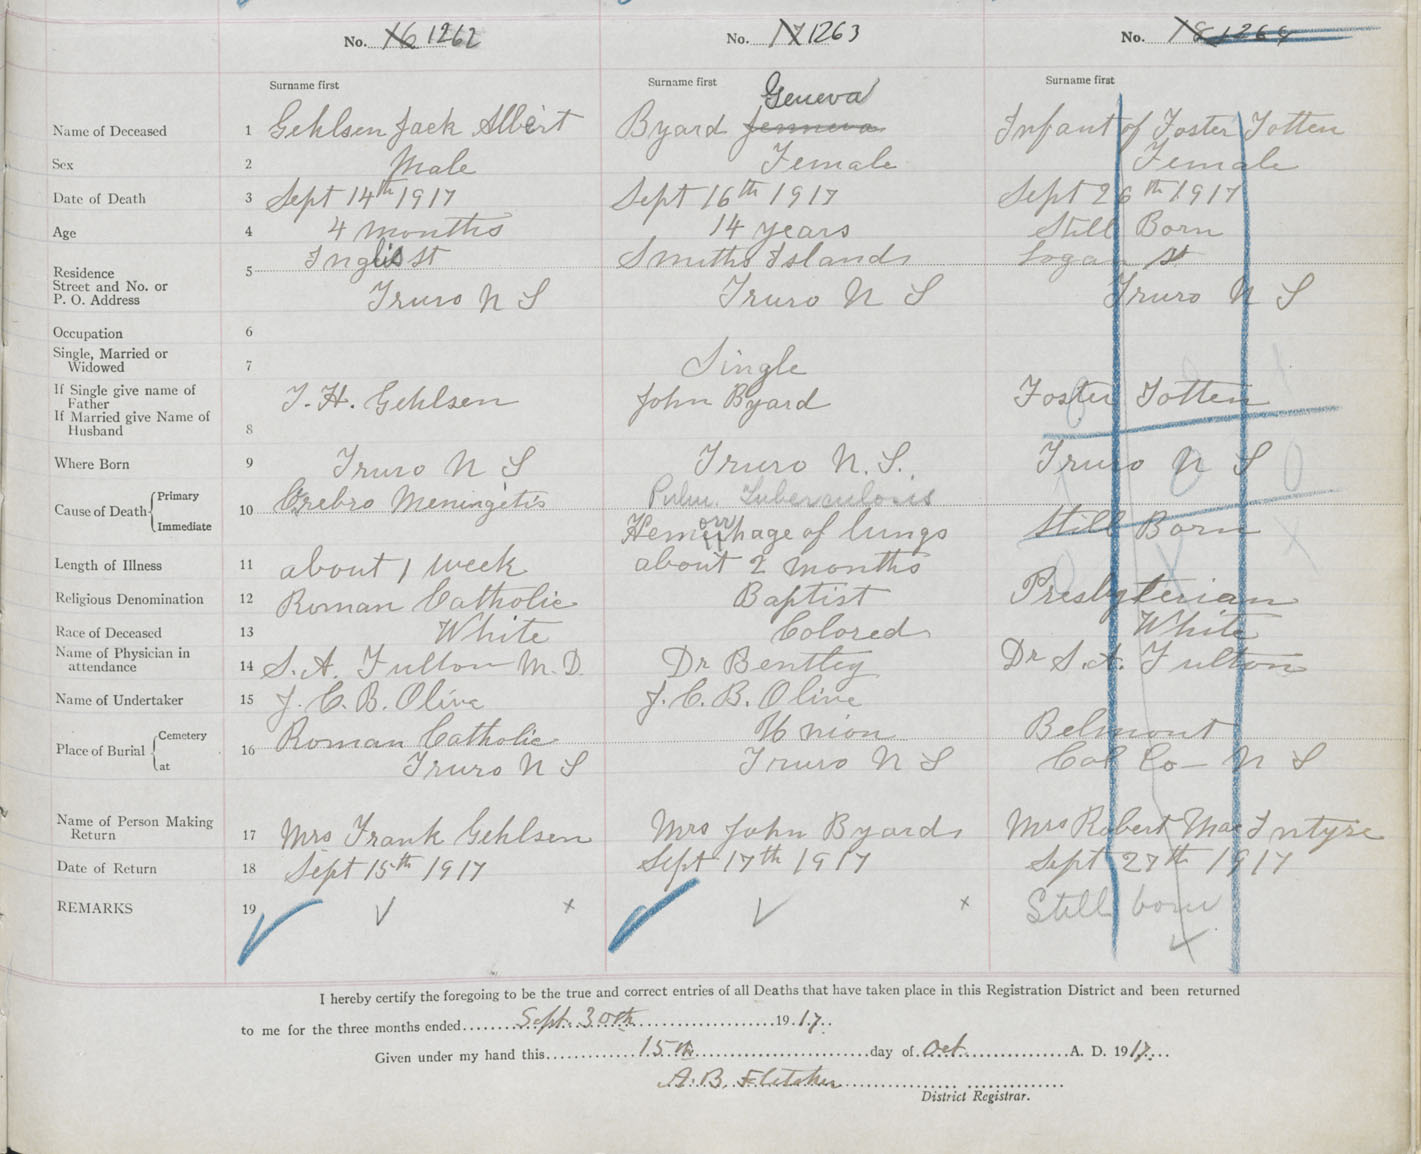 No. 16 1262 No. 17 1263 No. 18 1264
Surname first Surname first Surname first
Geneva
Name of Deceased 1 Gehlsen Jack Albert Byard Jenneva Infant of Foster Totten
Sex 2 Male Female Female
Date of Death 3 Sept 14th 1917 Sept 16th 1917 Sept 26th 1917
Age 4 4 months 14 years Still Born
Residence 5 Inglis St Smiths Islands Logan St
Street and No. or
P. O. Address Truro N S Truro N S Truro N S
Occupation 6
Single, Married or
Widowed 7 Single
If Single give name of
Father T. H. Gehlsen John Byard Foster Totten
If Married give Name of
Husband 8
Where Born 9 Truro N S Truro N. S. Truro N S
Primary Pulm. Tuberculosis
Cause of Death 10 Cerebro Meningetis
Immediate Hemorrhage of lungs Still Born
Length of Illness 11 about 1 week about 2 months
Religious Denomination 12 Roman Catholic Baptist Presbyterian
Race of Deceased 13 White Colored White
Name of Physician in
attendance 14 S. A. Fulton M. D. Dr Bentley Dr S. A. Fulton
Name of Undertaker 15 J. C. B. Olive J. C. B. Olive
Cemetery Roman Catholic Union Belmont
Place of Burial 16
at Truro N S Truro N S Col Co - N S
Name of Person Making
Return 17 Mrs Frank Gehlsen Mrs John Byard Mrs Robert MacIntyre
Date of Return 18 Sept 15th 1917 Sept 17th 1917 Sept 27th 1917
REMARKS 19 Still born
I hereby certify the foregoing to be the true and correct entries of all Deaths that have taken place in this Registration District and been returned
to me for the three months ended Sept. 30th 1917.
Given under my hand this 15th day of Oct. A. D. 1917.
A. B. Fletcher
District Registrar.